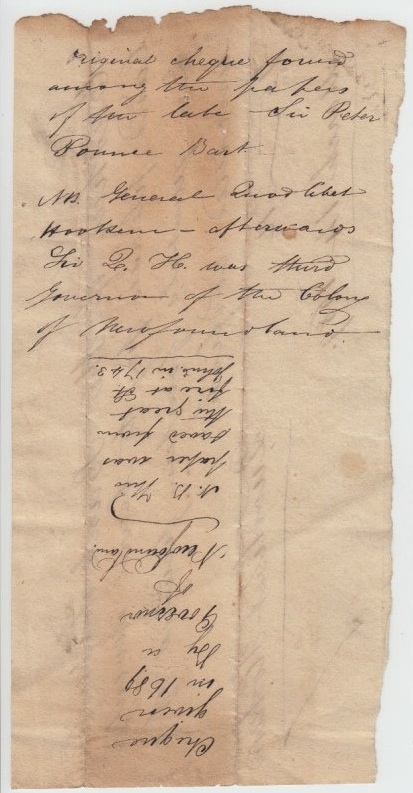 Original cheque found
among the papers
of the late Sir Peter
Pounce Bart
NB. General Quodlibet
Hookem - afterwards
Sir Q. H. was third
Governor of the Colony
of Newfoundland.
Cheque
given
in 1689
By a
Governor
of
Newfoundland.
N. B. This
paper was
saved from
the great
fire at St
John's in 1743.